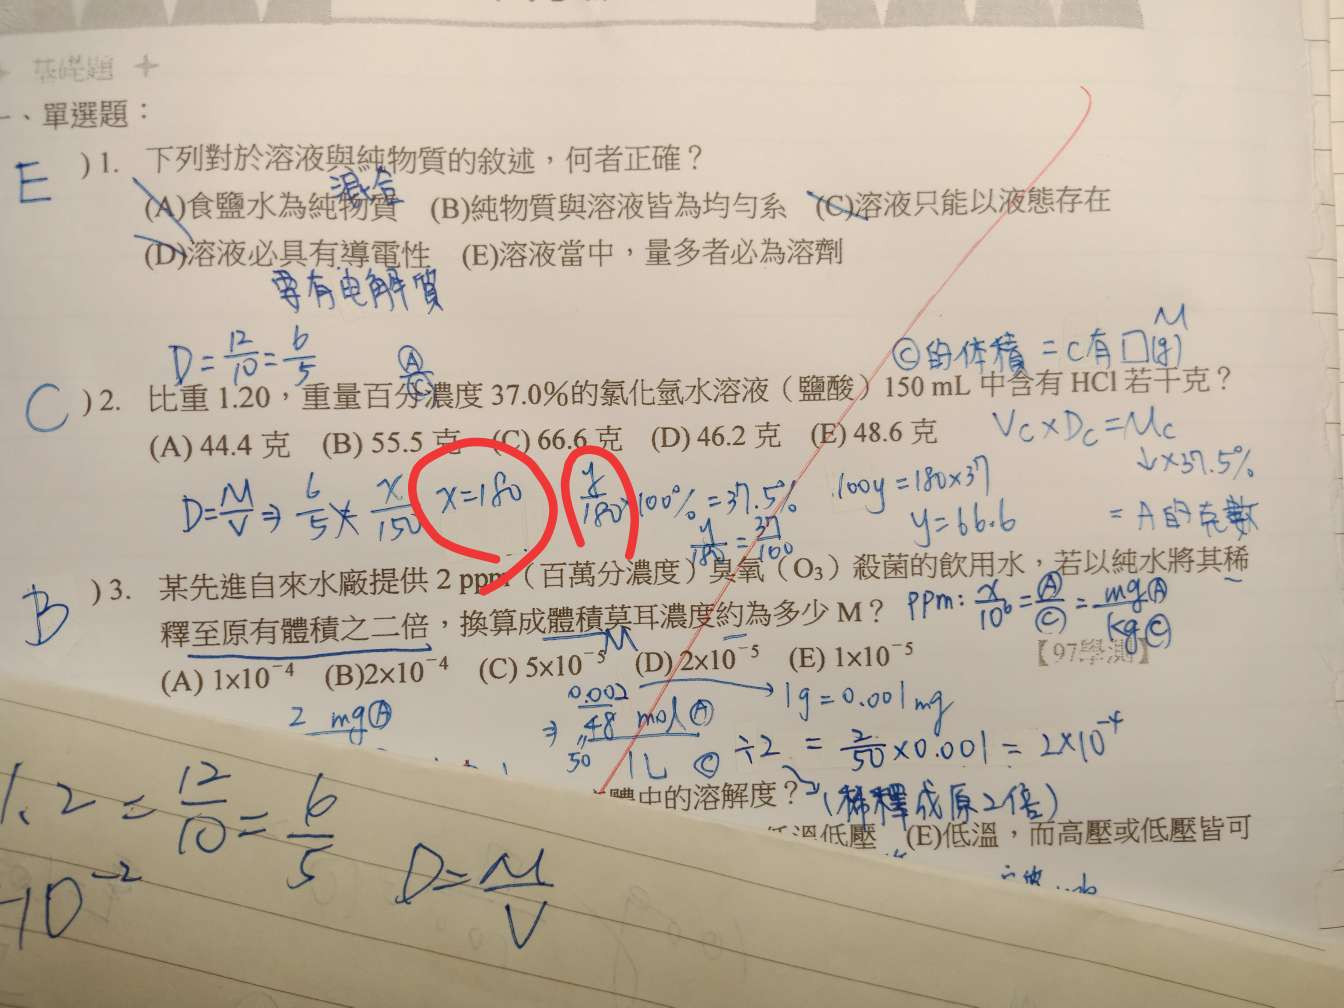 基礎題
一、單選題：
E )1. 下列對於溶液與純物質的敘述，何者正確？
混合
(A)食鹽水為純物質 (B)純物質與溶液皆為均勻系 (C)溶液只能以液態存在
(D)溶液必具有導電性 (E)溶液當中，量多者必為溶劑
要有电解質
D=12/10=6/5 Ⓐ/Ⓒ Ⓒ的体積 = C有□(g) M
C )2. 比重 1.20，重量百分濃度 37.0%的氯化氫水溶液（鹽酸）150 mL 中含有 HCl 若干克？
(A) 44.4 克 (B) 55.5 克 (C) 66.6 克 (D) 46.2 克 (E) 48.6 克 Vc×Dc=Mc
↓×37.5%
D=M/V ⇒ 6/5 x/150 x=180 y/180×100%=37.5% 100y=180×37
y/180=37/100 y=66.6 =A的克數
B )3. 某先進自來水廠提供 2 ppm（百萬分濃度）臭氧（O₃）殺菌的飲用水，若以純水將其稀
釋至原有體積之二倍，換算成體積莫耳濃度約為多少 M？ ppm: x/10⁶=Ⓐ/Ⓒ=mgⒶ/kgⒸ
M
(A) 1×10⁻⁴ (B)2×10⁻⁴ (C) 5×10⁻⁵ (D) 2×10⁻⁵ (E) 1×10⁻⁵ 【97學測】
2 mgⒶ ⇒ 0.002/48 molⒶ 1g=0.001mg
50 1L Ⓒ ÷2 = 2/50×0.001 = 2×10⁻⁴
體中的溶解度？ (稀釋成原2倍)
低溫低壓 (E)低溫，而高壓或低壓皆可
1.2=12/10=6/5 D=M/V
10⁻²